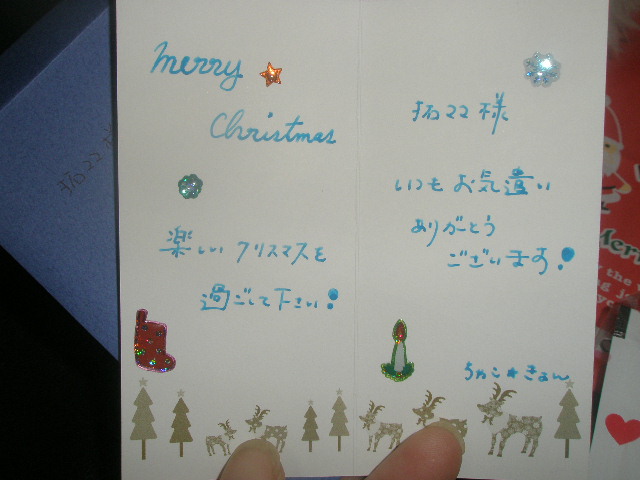 Merry
Christmas
楽しい クリスマスを
過ごして下さい!
拓ママ様
いつもお気遣い
ありがとう
ございます!
拓ママ
Merry
the